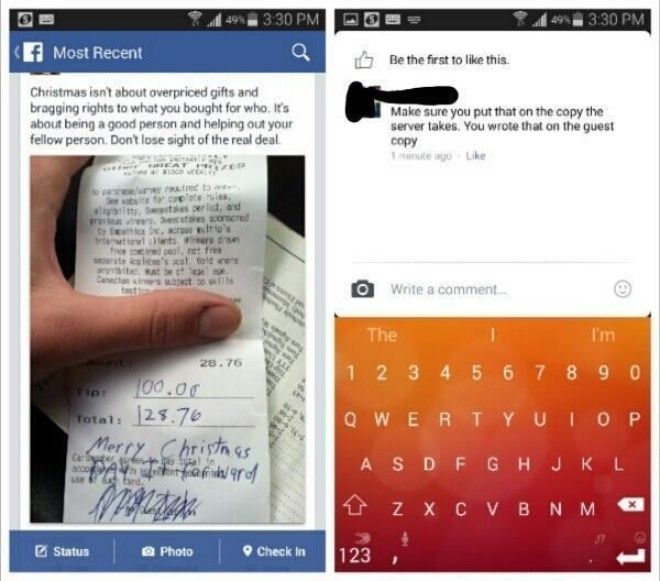 49% 3:30 PM
Most Recent
Christmas isn't about overpriced gifts and
bragging rights to what you bought for who. It's
about being a good person and helping out your
fellow person. Don't lose sight of the real deal.
GREAT PRIZES
No purchase/survey required to enter.
See website for complete rules,
eligibility, Sweepstakes period, and
previous winners. Sweepstakes sponsored
by Empathica Inc, across multiple
international clients. Winners drawn
from combined pool, not from
separate Applebee's pool. Void where
prohibited. Must be of legal age.
Canadian winners subject to skills
28.76
Tip: 100.00
Total: 128.76
Merry Christmas
Pay it forward
Status
Photo
Check In
49% 3:30 PM
Be the first to like this.
Make sure you put that on the copy the
server takes. You wrote that on the guest
copy
1 minute ago · Like
Write a comment...
The I I'm
1 2 3 4 5 6 7 8 9 0
Q W E R T Y U I O P
A S D F G H J K L
Z X C V B N M
123 , .!?